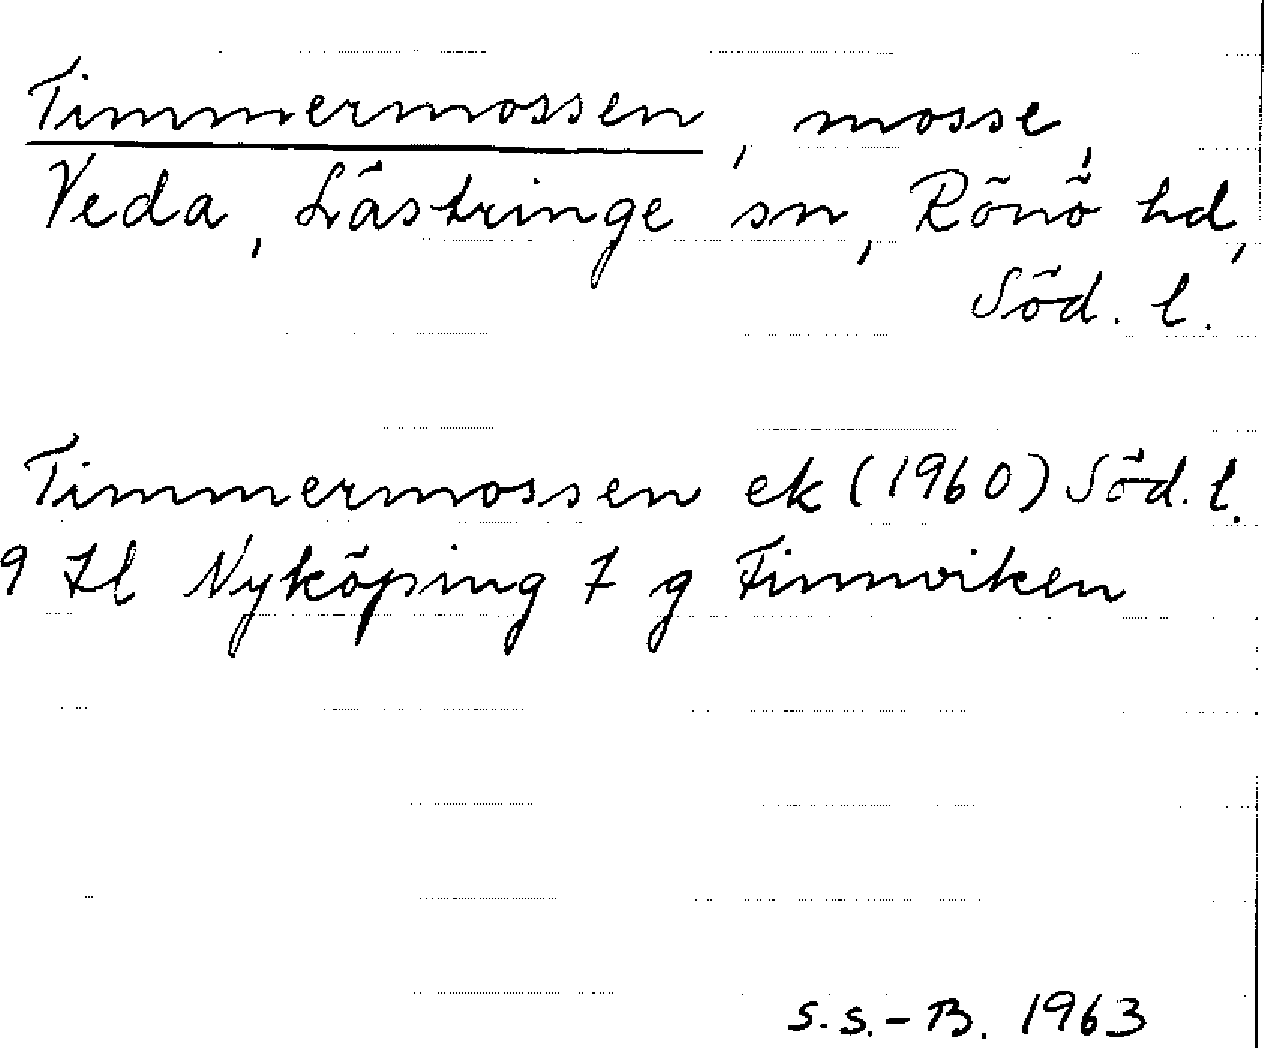 Timmermossen, mosse,
Veda, Lästringe sn, Rönö hd,
Söd. l.
Timmermossen ek (1960) Söd. l.
9 Il Nyköping 7 g Finnviken
S.S.-B. 1963